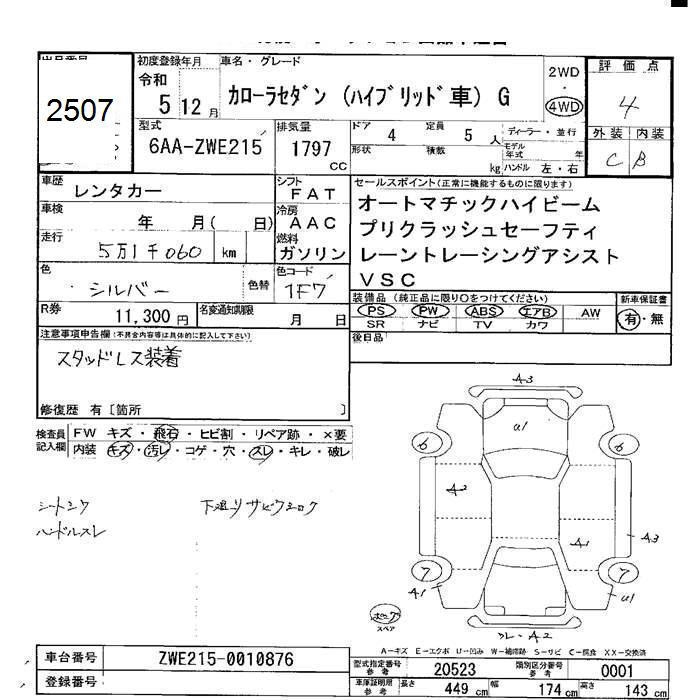 2507
初度登録年月
令和
5 12 月
車名・グレード
カローラセダン (ハイブリッド車) G
2WD
・
4WD
評価点
4
外装 内装
C B
型式
6AA-ZWE215
排気量
1797
CC
ドア 4 定員 5 人
形状 積載 kg
ディーラー・並行
モデル年式 年
ハンドル 左・右
車歴
レンタカー
シフト
FAT
車検
年 月( 日)
冷房
AAC
走行
5万1千060 km
燃料
ガソリン
色
シルバー
色替
色コード
1F7
R券
11,300 円
名変通知期限
月 日
セールスポイント(正常に機能するものに限ります)
オートマチックハイビーム
プリクラッシュセーフティ
レーントレーシングアシスト
VSC
装備品 (純正品に限り○をつけてください)
PS PW ABS エアB AW
SR ナビ TV カワ
新車保証書
有・無
後日品
注意事項申告欄(不具合内容等は具体的に記入して下さい)
スタッドレス装着
修復歴 有〔箇所 〕
検査員記入欄
FW キズ・飛石・ヒビ割・リペア跡・×要
内装 キズ・汚レ・コゲ・穴・スレ・キレ・破レ
シートシワ
ハンドルスレ
下廻りサビ
A3
a1
6
6
A2
A1
A3
7
7
A1
a1
スペア
A2
A-キズ E-エクボ U-凹み W-補修跡 S-サビ C-腐食 XX-交換済
車台番号
ZWE215-0010876
登録番号
型式指定番号
参考
20523
類別区分番号
参考
0001
車庫証明用
参考
長さ 449 cm 幅 174 cm 高さ 143 cm